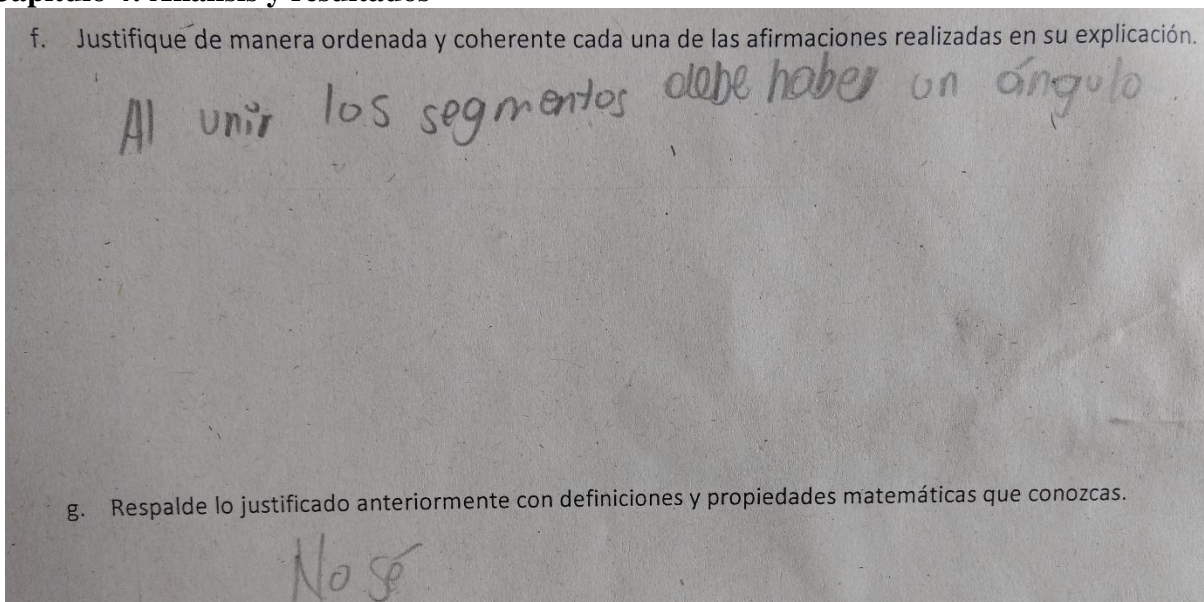 Capítulo 4. Análisis y resultados
f. Justifique de manera ordenada y coherente cada una de las afirmaciones realizadas en su explicación.
Al unir los segmentos debe haber un ángulo
g. Respalde lo justificado anteriormente con definiciones y propiedades matemáticas que conozcas.
No sé